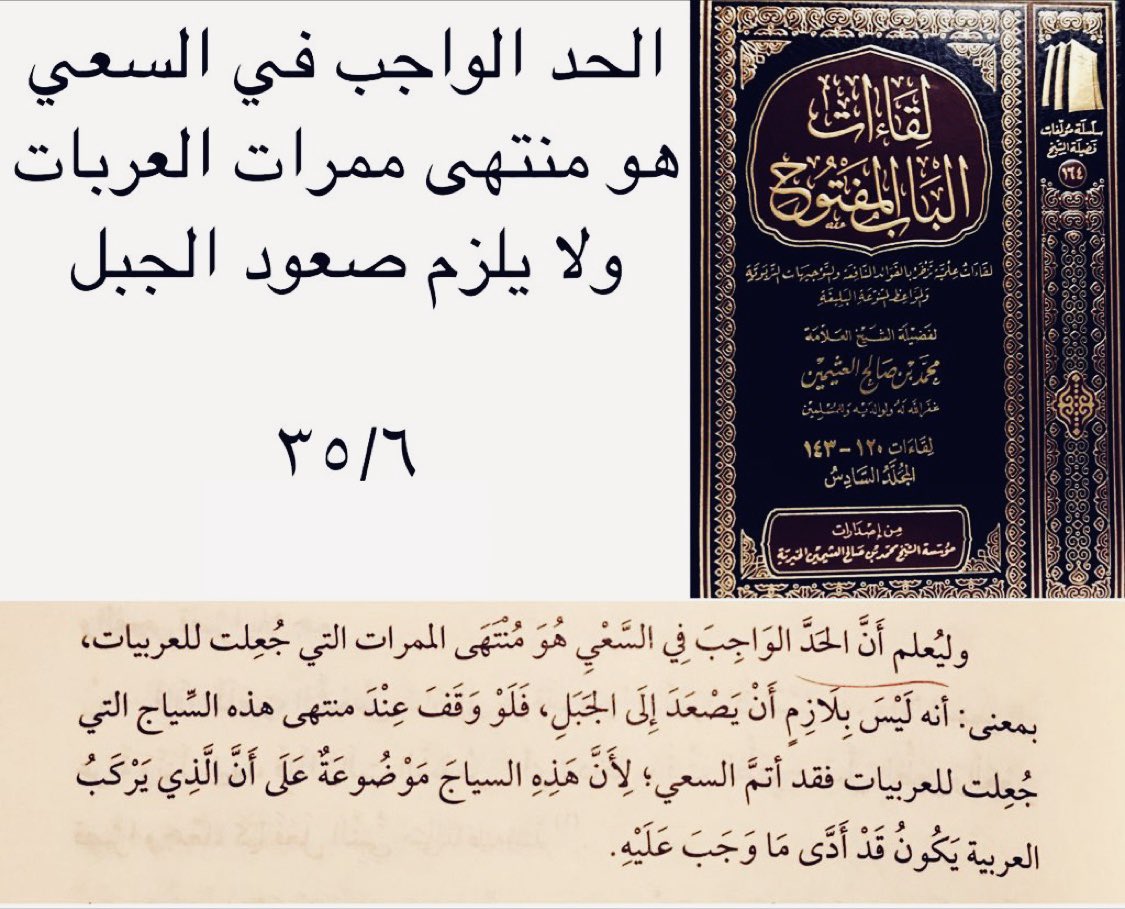 الحد الواجب في السعي
هو منتهى ممرات العربات
ولا يلزم صعود الجبل
٣٥/٦
لِقَاءَات
البَابِ المَفْتُوحِ
لقاءات علمية تزخر بالفوائد النافعة والتوجيهات التربوية
والمواعظ المنوعة البليغة
لفضيلة الشيخ العلامة
محمد بن صالح العثيمين
غفر الله له ولوالديه وللمسلمين
لقاءات ١٢٠ - ١٤٣
المجلد السادس
من إصدارات
مؤسسة الشيخ محمد بن صالح العثيمين الخيرية
سلسلة مؤلفات
فضيلة الشيخ
١٦٤
وليُعلم أَنَّ الحَدَّ الوَاجِبَ فِي السَّعْيِ هُوَ مُنْتَهَى الممرات التي جُعِلت للعربيات،
بمعنى: أنه لَيْسَ بِلَازِمٍ أَنْ يَصْعَدَ إِلَى الجَبَلِ، فَلَوْ وَقَفَ عِنْدَ منتهى هذه السِّياج التي
جُعِلت للعربيات فقد أتمَّ السعي؛ لِأَنَّ هَذِهِ السياجَ مَوْضُوعَةٌ عَلَى أَنَّ الَّذِي يَرْكَبُ
العربية يَكُونُ قَدْ أَدَّى مَا وَجَبَ عَلَيْهِ.